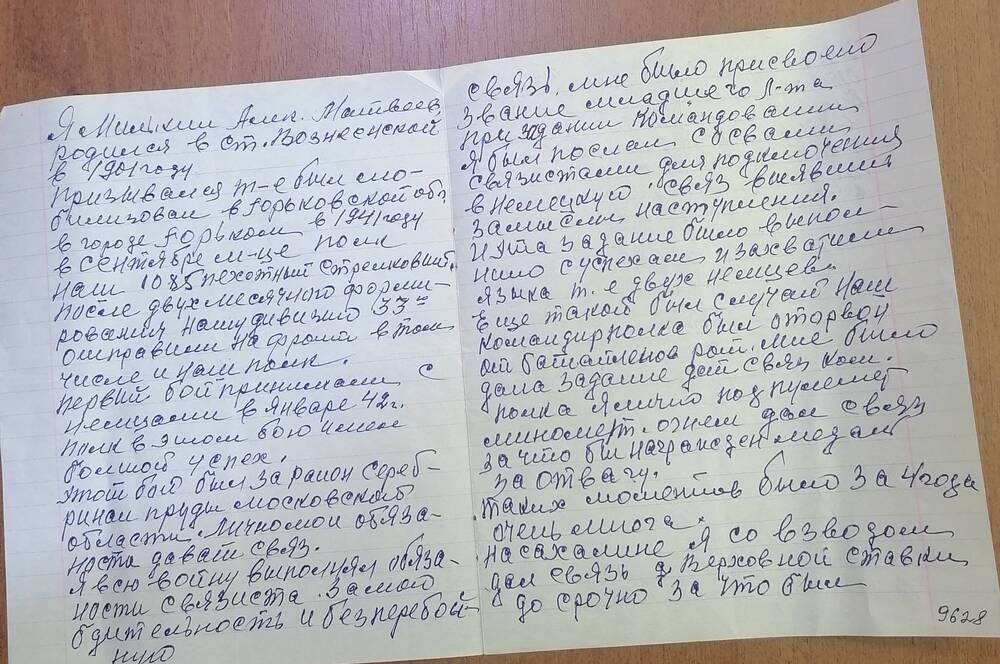 Я Милкин Алек. Матвеев
родился в ст. Вознесенской
в 1901 году
призывался т-е был мо-
билизован в Горьковской обл
в городе Горьком в 1941 году
в сентябре м-це полк
наш 1085 пехотный стрелковый.
после двух месячного форми-
рования нашу дивизию 33ю
отправили на фронт в том
числе и наш полк.
первый бой принимали с
немцами в январе 42 г.
полк в этом бою имел
болшой успех.
этот бой был за раион Сереб-
ринаи пруды московской
области. Лично мои обяза-
носта давать связ.
Я всю войну выполнял обяза-
ности связиста. За мою
бдительность и безперебой-
ную
связь. мне было присвоено
звание младшего Л-та
при задании командовании
Я был послан с 3 связистами
связистами для подключения
в немецкую связ выявить
замыслы наступления.
и эта задание было выпол-
нино с успехам и захватили
языка т. е двух немцев.
Еще такой был случай наш
командир полка был оторван
от баталионов рот. мне было
дана задание дат связ ком.
полка Я лично под пулемет
миномет. огнем дал связ
за что был награжден медал
за отвагу.
таких моментов было за 4 года
очень многа.
на сахалине Я со взводом
дал связь Верховной ставки
до срочно за что был
9628